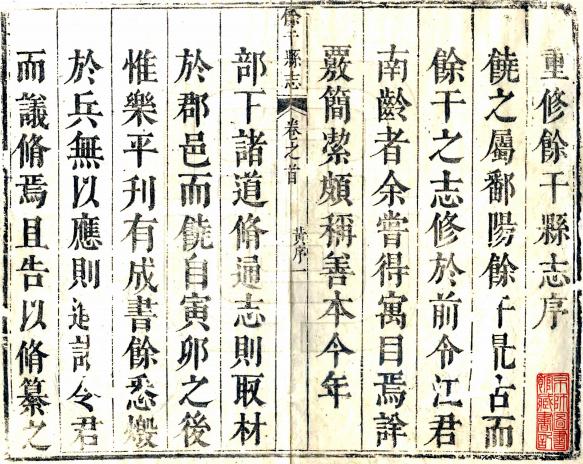 重修餘干縣志序
饒之屬鄱陽餘干最古而
餘干之志修於前令江君
南齡者余嘗得寓目焉詮
覈簡絜頗稱善本今年
餘干縣志
卷之首
黃序一
部下諸道脩通志則取材
於郡邑而饒自寅卯之後
惟樂平刊有成書餘悉燬
於兵無以應則令君
而議脩焉且告以脩纂之